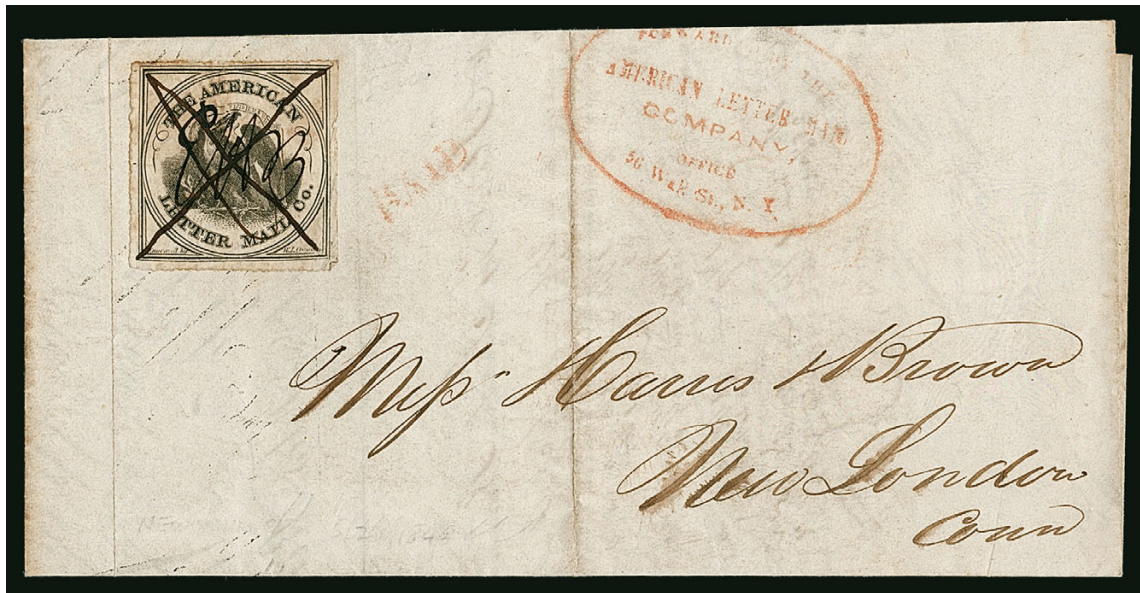 THE AMERICAN
LETTER MAIL CO.
PAID
FORWARD BY THE
AMERICAN LETTER MAIL
COMPANY,
OFFICE
56 Wall St., N. Y.
Messrs Harris & Brown
New London
Conn